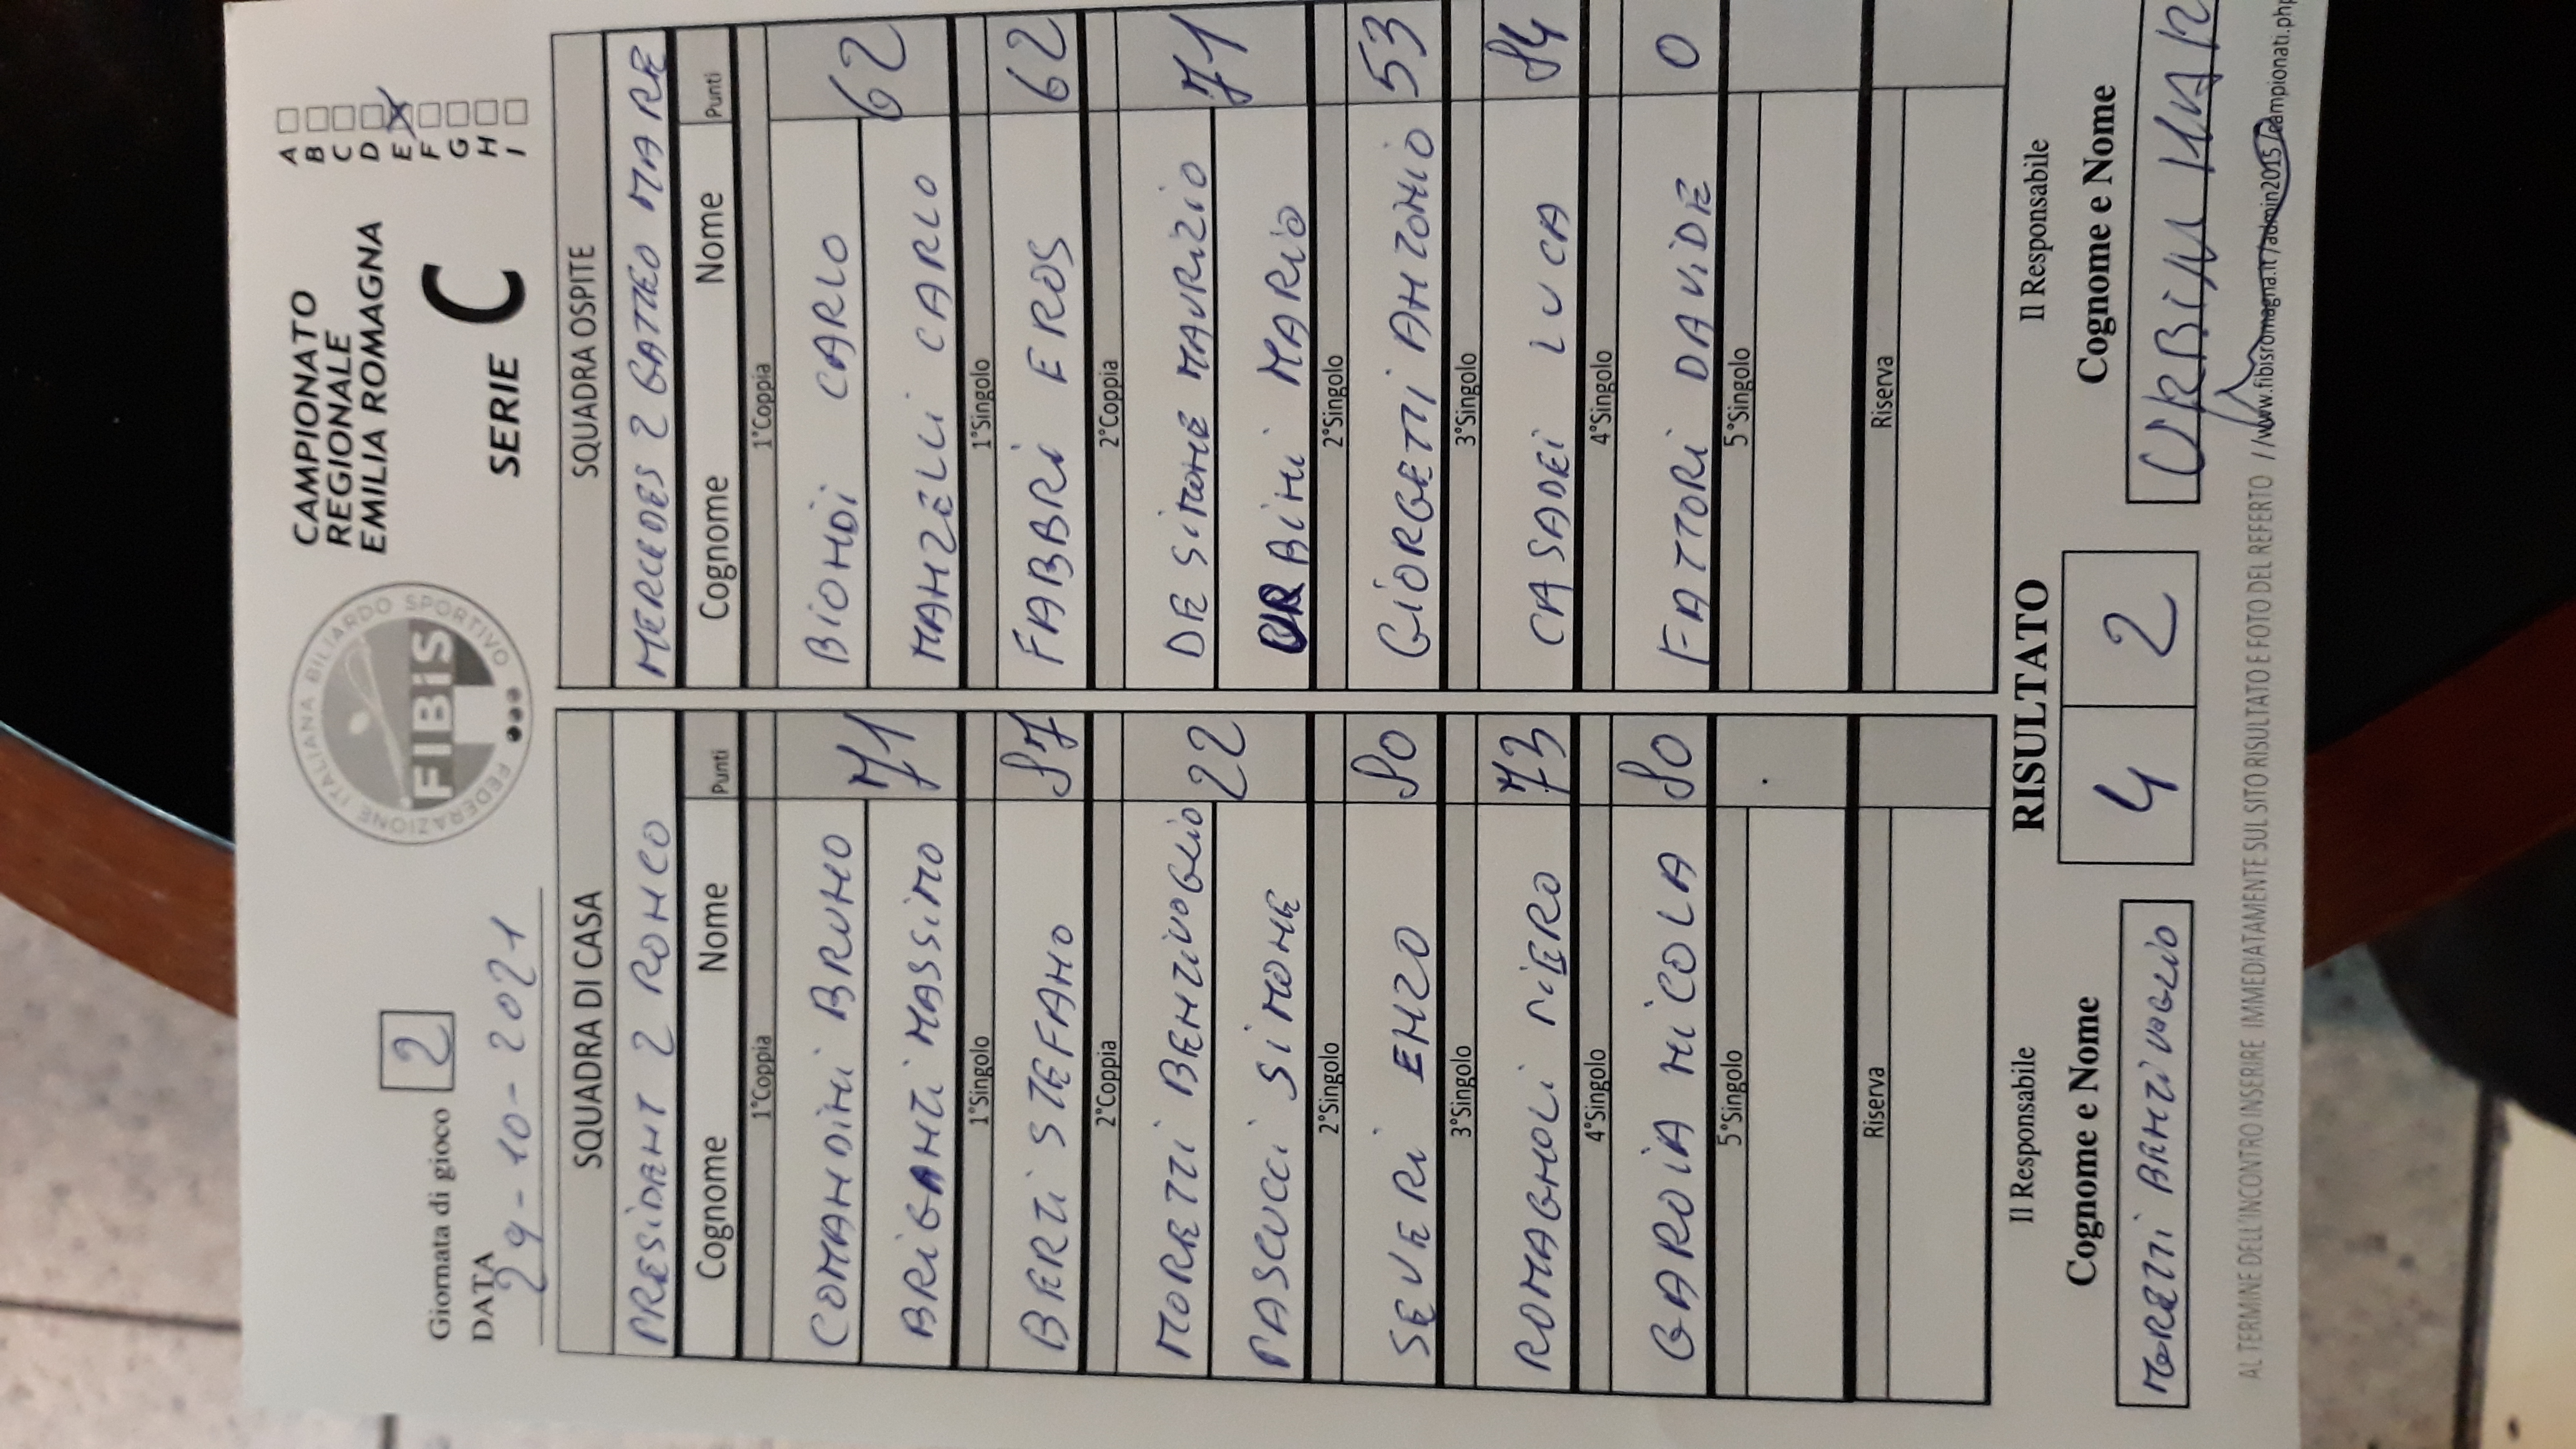 Giornata di gioco 2
DATA 29-10-2021
FEDERAZIONE ITALIANA BILIARDO SPORTIVO
FIBiS
CAMPIONATO
REGIONALE
EMILIA ROMAGNA
SERIE C
A
B
C
D
E X
F
G
H
I
SQUADRA DI CASA SQUADRA OSPITE
PRESIDENT 2 RONCO MERCEDES 2 GATTEO MARE
Cognome Nome Punti Cognome Nome Punti
1°Coppia 1°Coppia
COMANDINI BRUNO 71 BIONDI CARLO 62
BRIGANTI MASSIMO MANZELLI CARLO
1°Singolo 1°Singolo
BERTI STEFANO 87 FABBRI EROS 62
2°Coppia 2°Coppia
MORETTI BENTIVOGLIO 22 DE SIMONE MAURIZIO 71
PASCUCCI SIMONE URBINI MARIO
2°Singolo 2°Singolo
SEVERI ENZO 80 GIORGETTI ANTONIO 53
3°Singolo 3°Singolo
ROMAGNOLI PIERO 73 CASADEI LUCA 84
4°Singolo 4°Singolo
GAROIA NICOLA 80 FATTORI DAVIDE 0
5°Singolo 5°Singolo
Riserva Riserva
Il Responsabile RISULTATO Il Responsabile
Cognome e Nome 4 2 Cognome e Nome
MORETTI BENTIVOGLIO URBINI
AL TERMINE DELL'INCONTRO INSERIRE IMMEDIATAMENTE SUL SITO RISULTATO E FOTO DEL REFERTO //www.fibisromagna.it/admin2015/campionati.php